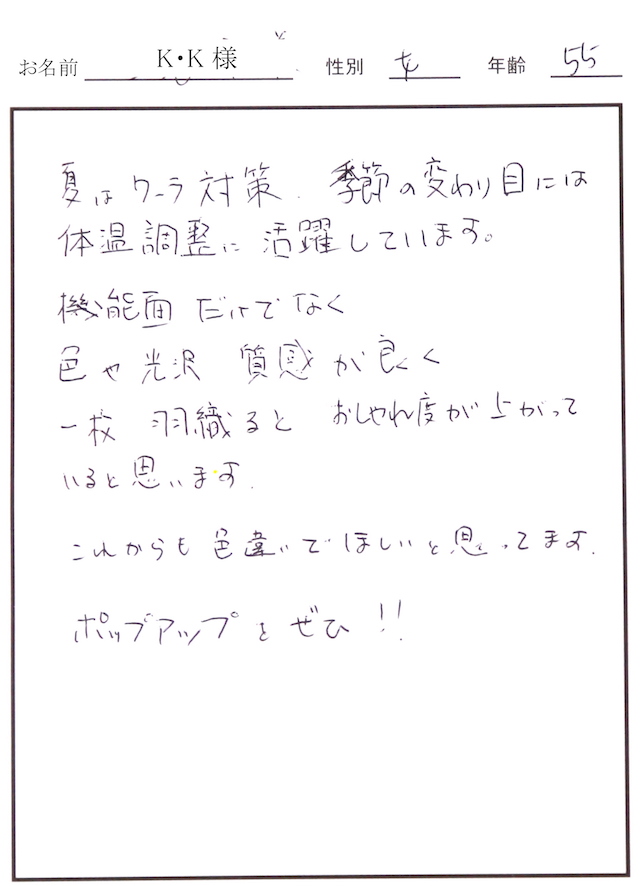 お名前 K・K 様 性別 女 年齢 55
夏はクーラ対策. 季節の変わり目には
体温調整に 活躍しています。
機能面 だけでなく
色や光沢 質感が良く
一枚 羽織ると おしゃれ度が上がって
いると思います.
これからも 色違いでほしいと思ってます.
ポップアップもぜひ!!